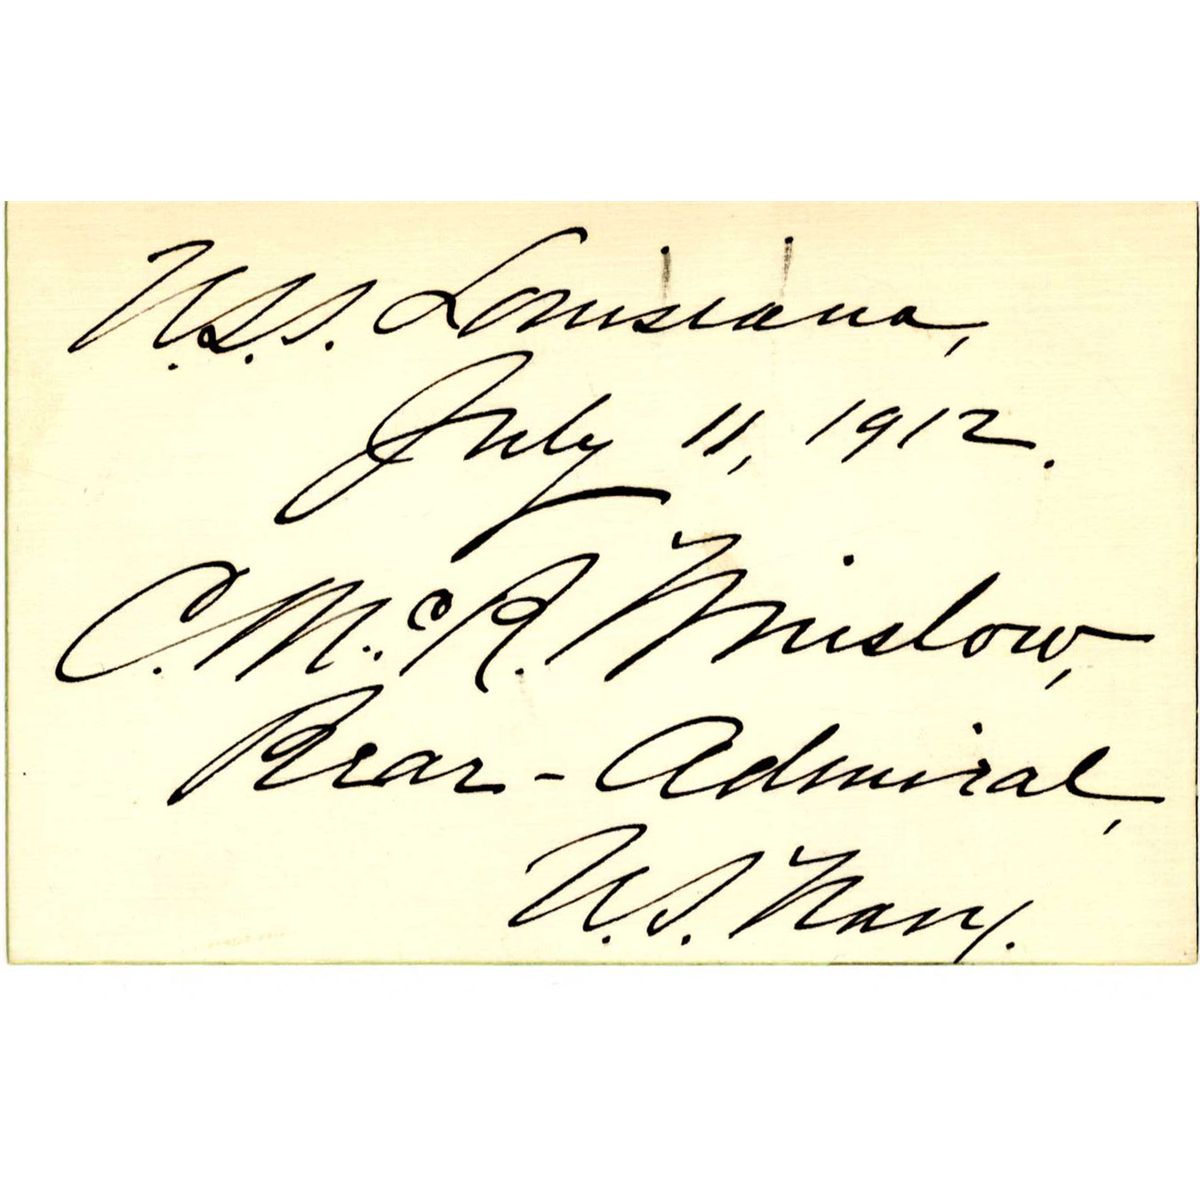 U.S.S. Louisiana,
July 11, 1912.
C. McR. Winslow,
Rear-Admiral,
U.S. Navy.